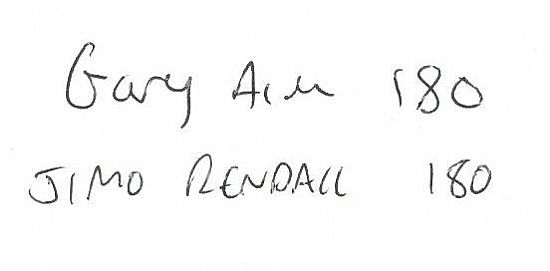 Gary 180
JIMO RENDALL 180